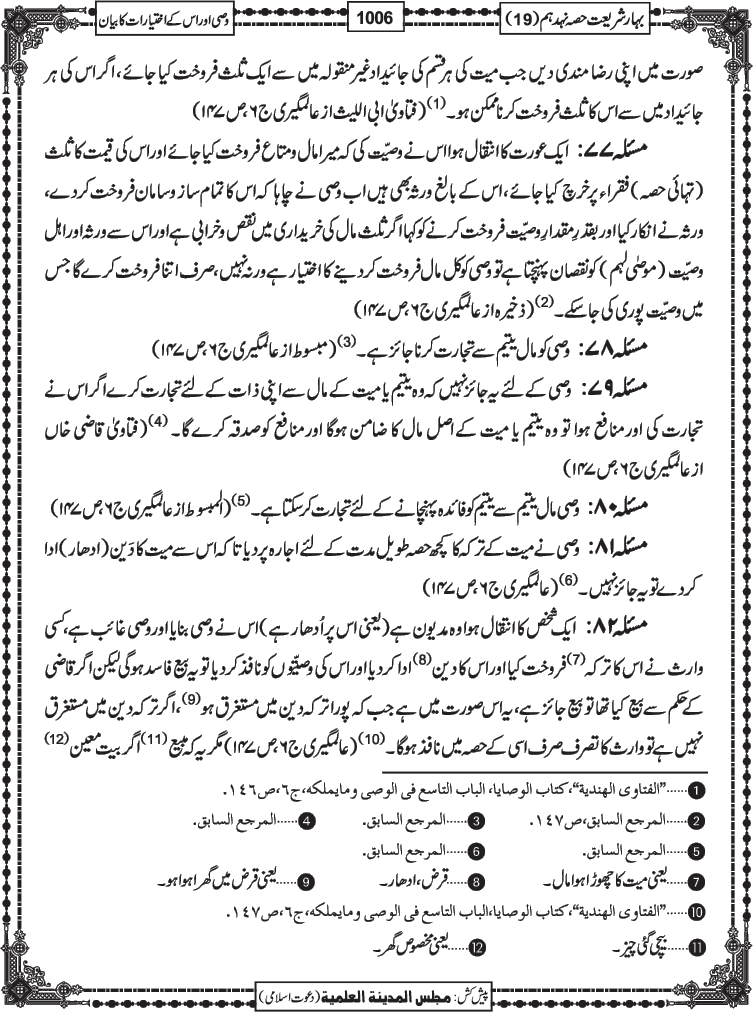 بہار شریعت حصہ نہدہم (19)
1006
وصی اور اس کے اختیارات کا بیان
صورت میں اپنی رضا مندی دیں جب میت کی ہر قسم کی جائیداد غیر منقولہ میں سے ایک ثلث فروخت کیا جائے، اگر اس کی ہر
جائیداد میں سے اس کا ثلث فروخت کرنا ممکن ہو۔(1) (فتاویٰ ابی اللیث از عالمگیری ج۶ ص۱۴۷)
مسئلہ ۷۷: ایک عورت کا انتقال ہوا اس نے وصیّت کی کہ میرا مال و متاع فروخت کیا جائے اور اس کی قیمت کا ثلث
(تہائی حصہ) فقراء پر خرچ کیا جائے، اس کے بالغ ورثہ بھی ہیں اب وصی نے چاہا کہ اس کا تمام ساز و سامان فروخت کر دے،
ورثہ نے انکار کیا اور بقدرِ مقدارِ وصیّت فروخت کرنے کو کہا اگر ثلث مال کی خریداری میں نقص و خرابی ہے اور اس سے ورثہ اور اہل
وصیّت (موصٰی لہم) کو نقصان پہنچتا ہے تو وصی کو کل مال فروخت کر دینے کا اختیار ہے ورنہ نہیں، صرف اتنا فروخت کرے گا جس
میں وصیّت پوری کی جا سکے۔(2) (ذخیرہ از عالمگیری ج۶، ص۱۴۷)
مسئلہ ۷۸: وصی کو مال یتیم سے تجارت کرنا جائز ہے۔(3) (مبسوط از عالمگیری ج۶، ص۱۴۷)
مسئلہ ۷۹: وصی کے لئے یہ جائز نہیں کہ وہ یتیم یا میت کے مال سے اپنی ذات کے لئے تجارت کرے اگر اس نے
تجارت کی اور منافع ہوا تو وہ یتیم یا میت کے اصل مال کا ضامن ہوگا اور منافع کو صدقہ کرے گا۔(4) (فتاویٰ قاضی خاں
از عالمگیری ج۶، ص۱۴۷)
مسئلہ ۸۰: وصی مال یتیم سے یتیم کو فائدہ پہنچانے کے لئے تجارت کر سکتا ہے۔(5) (المبسوط از عالمگیری ج۶، ص۱۴۷)
مسئلہ ۸۱: وصی نے میت کے ترکہ کا کچھ حصہ طویل مدت کے لئے اجارہ پر دیا تا کہ اس سے میت کا دَین (ادھار) ادا
کر دے تو یہ جائز نہیں۔(6) (عالمگیری ج۶، ص۱۴۷)
مسئلہ ۸۲: ایک شخص کا انتقال ہوا وہ مدیون ہے (یعنی اس پر اُدھار ہے) اس نے وصی بنایا اور وصی غائب ہے، کسی
وارث نے اس کا ترکہ(7) فروخت کیا اور اس کا دین(8) ادا کر دیا اور اس کی وصیّتوں کو نافذ کر دیا تو یہ بیع فاسد ہوگی لیکن اگر قاضی
کے حکم سے بیع کیا تھا تو بیع جائز ہے، یہ اس صورت میں ہے جب کہ پورا ترکہ دین میں مستغرق ہو(9)، اگر ترکہ دین میں مستغرق
نہیں ہے تو وارث کا تصرف صرف اسی کے حصہ میں نافذ ہوگا۔(10) (عالمگیری ج۶، ص۱۴۷) مگر یہ کہ مبیع(11) اگر بیت معین(12)
1 ......"الفتاوی الهندية"، كتاب الوصايا، الباب التاسع في الوصي ومايملكه، ج٦، ص١٤٦.
2 ......المرجع السابق، ص١٤٧. 3 ......المرجع السابق. 4 ......المرجع السابق.
5 ......المرجع السابق. 6 ......المرجع السابق.
7 ......یعنی میت کا چھوڑا ہوا مال۔ 8 ......قرض، ادھار۔ 9 ......یعنی قرض میں گھرا ہوا ہو۔
10 ......"الفتاوی الهندية"، كتاب الوصايا، الباب التاسع في الوصي ومايملكه، ج٦، ص١٤٧.
11 ......بیچی گئی چیز۔ 12 ......یعنی مخصوص گھر۔
پیش کش: مجلس المدینة العلمیة (دعوت اسلامی)